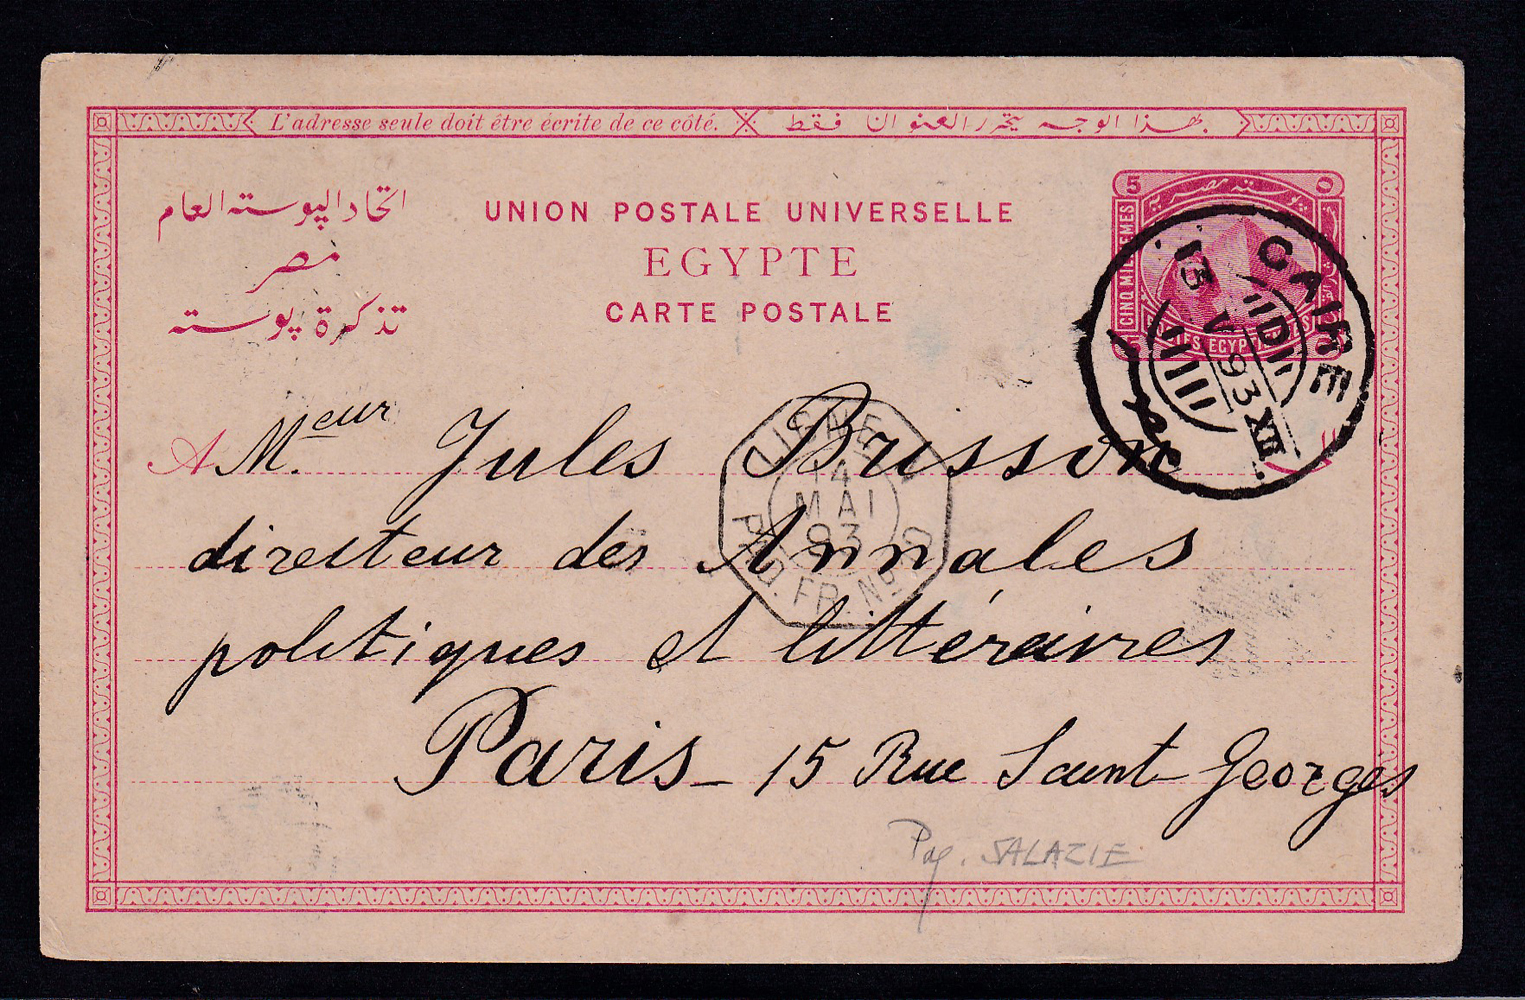 L'adresse seule doit être écrite de ce côté. بهذا الوجه يتحرر العنوان فقط
اتحاد البوسته العام
مصر
تذكرة بوسته
UNION POSTALE UNIVERSELLE
EGYPTE
CARTE POSTALE
5 ٥
CINQ MILLIEMES
POSTES EGYPTIENNES
CAIRE
13 V 93 XII
D
مصر
A M.eur Jules Brisson
directeur des Annales
politiques et littéraires
Paris - 15 Rue Saint Georges
LIGNE
14
MAI
93
PAQ. FR. No
Paq. SALAZIE